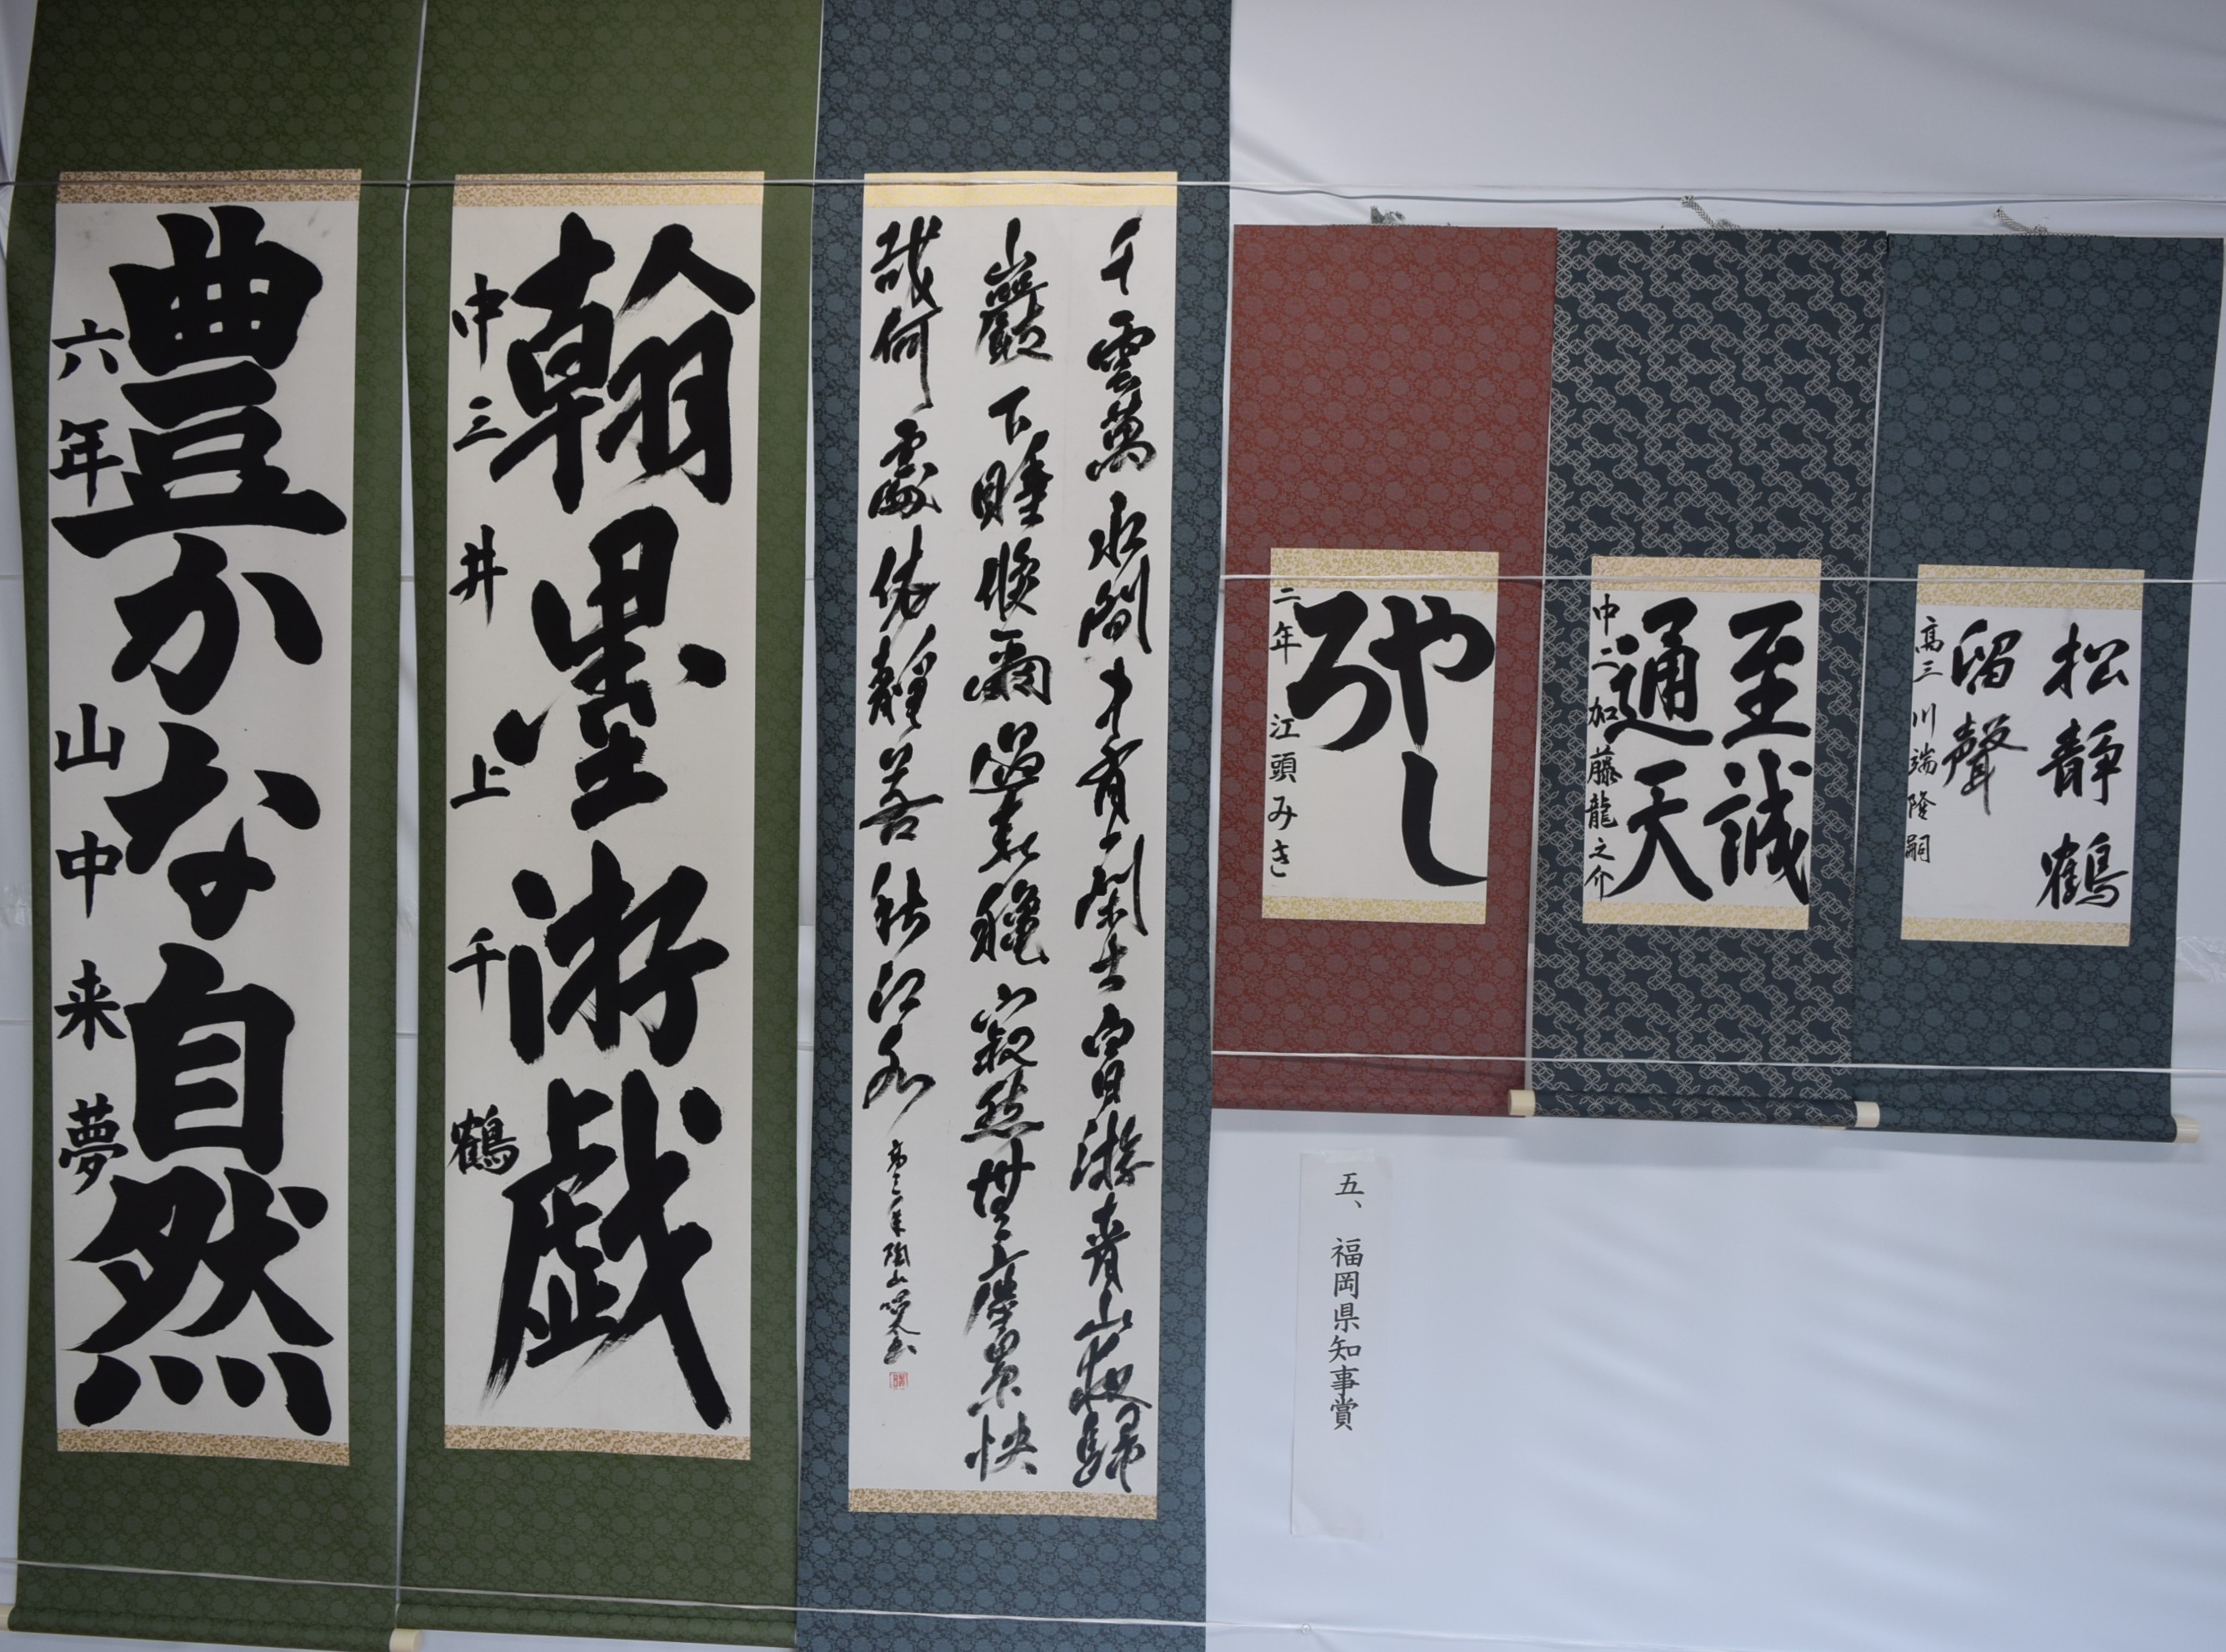 豊かな自然
六年 山中来夢
翰墨游戯
中三 井上千鶴
千雲萬水間中有一閑士白日游青山夜歸
巖下睡倏爾過春秋寂然無塵累快
哉何所依靜若秋江水
やし
ろ
二年 江頭みき
至誠
通天
中二 加藤龍之介
松静鶴
留聲
高三 川端隆嗣
五、福岡県知事賞